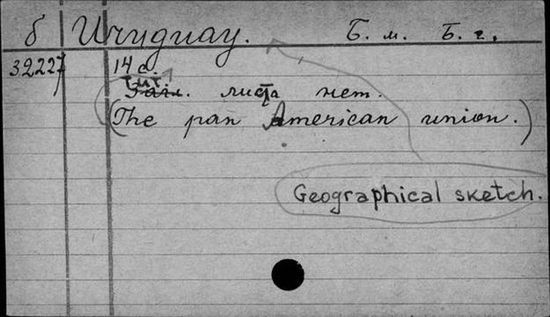 б Uruguay. Б. м. Б. г.
32227 14 с.
Тит.
Загл. листа нет.
(The pan American union.)
Geographical sketch.